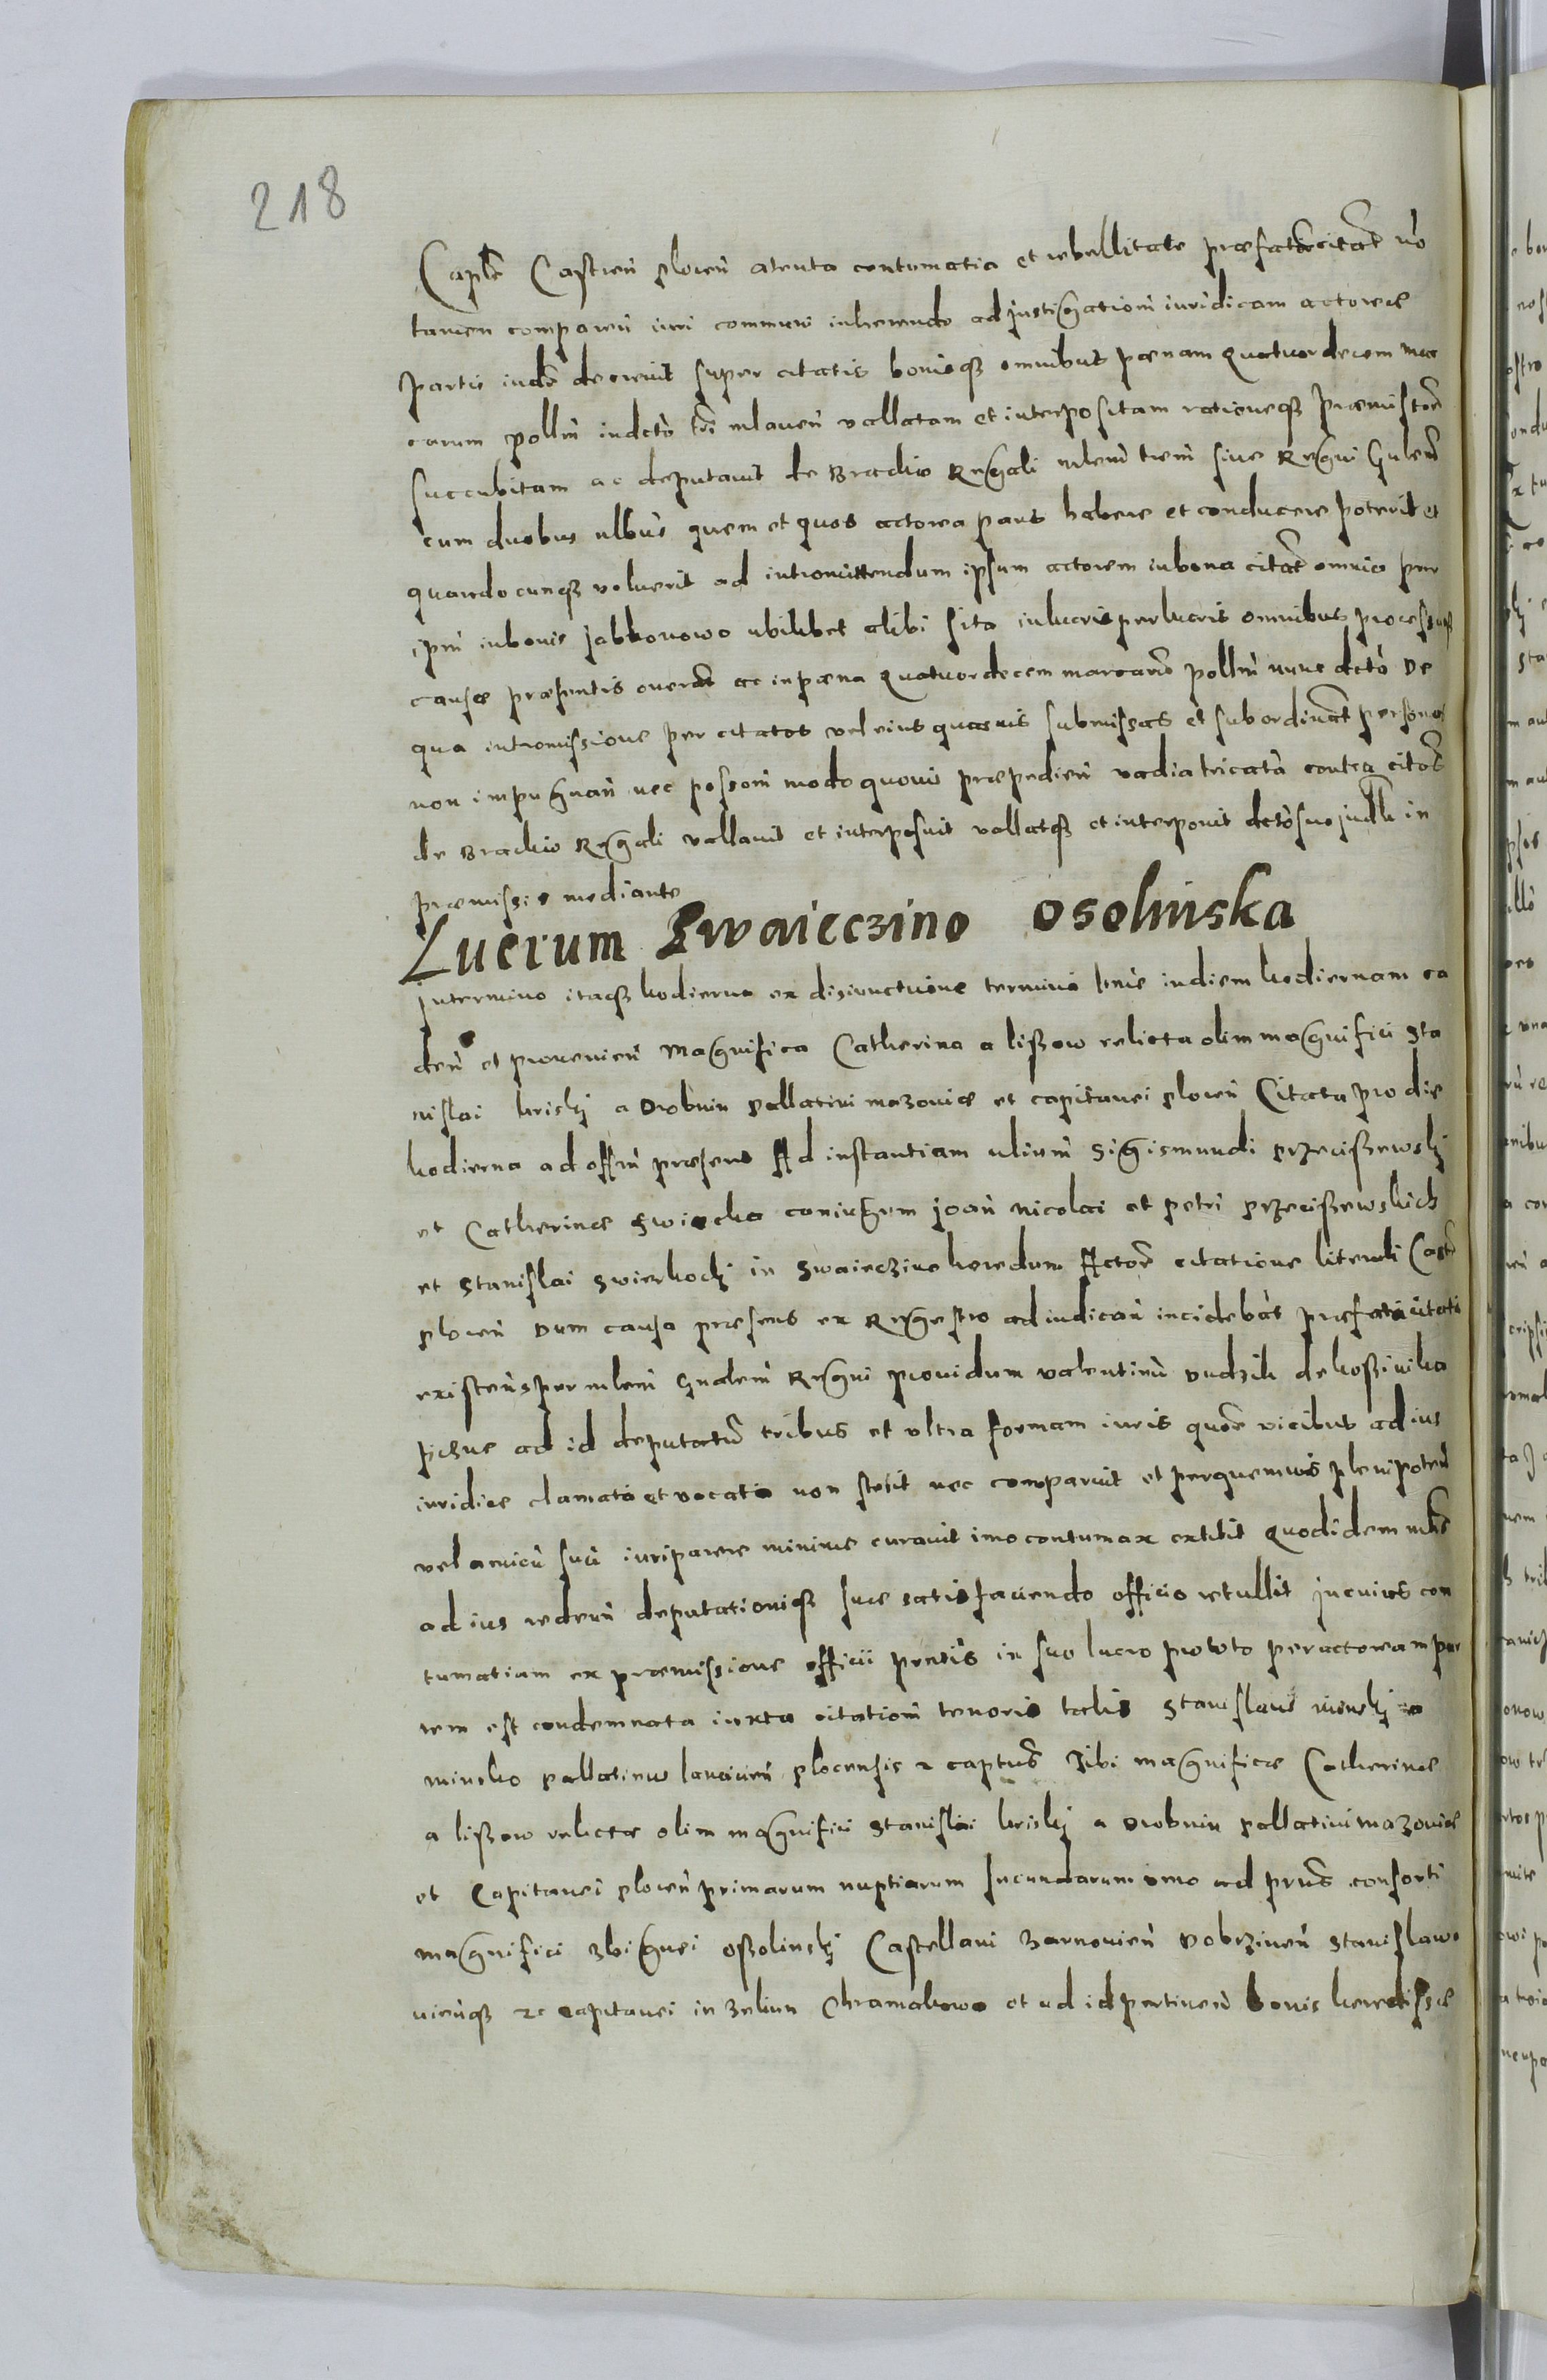 218
Caple Castren plocen atenta contumatia et rebellitate præfator citat no
tamen comparen iuri communi inherendo ad justigationi iuridicam actoreæ
partis inde decrevit super citatis bonisq omnibus pænam quatuordecem mar
carum pollni indcto tri mlaven vallatam et interpositam rationeq præmissor
succubitam ac deputavit de Brachio Regali mlem trem sive Regni Gnlem
cum duobus nlbus quem et quos actorea pars habere et conducere poterit et
quandocunq voluerit ad intromittendum ipsum actorem in bona citat omnia per
ipm in bonis Jabkonowo ubilibet alibi sita in lucris perlucris omnibus processuq
causæ præsentis onerat ac in pæna quatuordecem marcaru pollni nunc dcto De
qua intromissione per citatos vel eius quasvis submissas et subordinat personas
non impugnan nec possoni modo quovis præpedien vadia tricata contra citos
de Brachio Regali vallavit et interposuit vallatq et interponit dcto suo judli in
præmissis mediante
Lucrum Swaieczino Osolinska
In termino itaq hodierno ex disiunctione termini huic in diem hodiernam ca
den et provenien Magnifica Catherina a lißow relicta olim magnifici Sta
nislai kriskj a Drobnin pallatini mazoviæ et capitanei plocen Citata pro die
hodierna ad offm præsens Ad instantiam nlium Sigismundi przecißewskj
et Catherinæ Swiecka coniugum joan nicolai et petri przecißewskich
et Stanislai Swierkockj in Swaieczino heredum Actor citatione literali Castr
plocen Dum causa præsens ex Regestro ad iudican incidebat præfata citata
existens per mlem Gnalem Regni providum valentinu Dudzik de koßinika
pichne ad id deputatu tribus et ultra formam iuris quor vicibus ad ius
iuridice clamata et vocata non stetit nec comparuit et per quemvis plenipoten
vel amicu suu iuri parere minime curavit imo contumax extitit quod idem mlis
ad ius reden deputationiq suæ satisfaciendo officio retullit in cuius con
tumatiam ex præmissione officii pntis in suo lucro probto per actoream par
tem est condemnata iuxta citationi tenoris talis Stanislaus minskj a
minsko pallatinus lancicien plocensis z captus Tibi magnificæ Catherinæ
a lißow relictæ olim magnifici Stanislai kriskj a Drobnin pallatini mazoviæ
et Capitanei plocen primarum nuptiarum secundarum vero ad præs consorti
magnifici zbignei oßolinskj Castellani zarnovien Dobrzinen Stanislawo
vienq zc capitanei in zelun Chramakowo et ad id pertinen bonis heredissæ